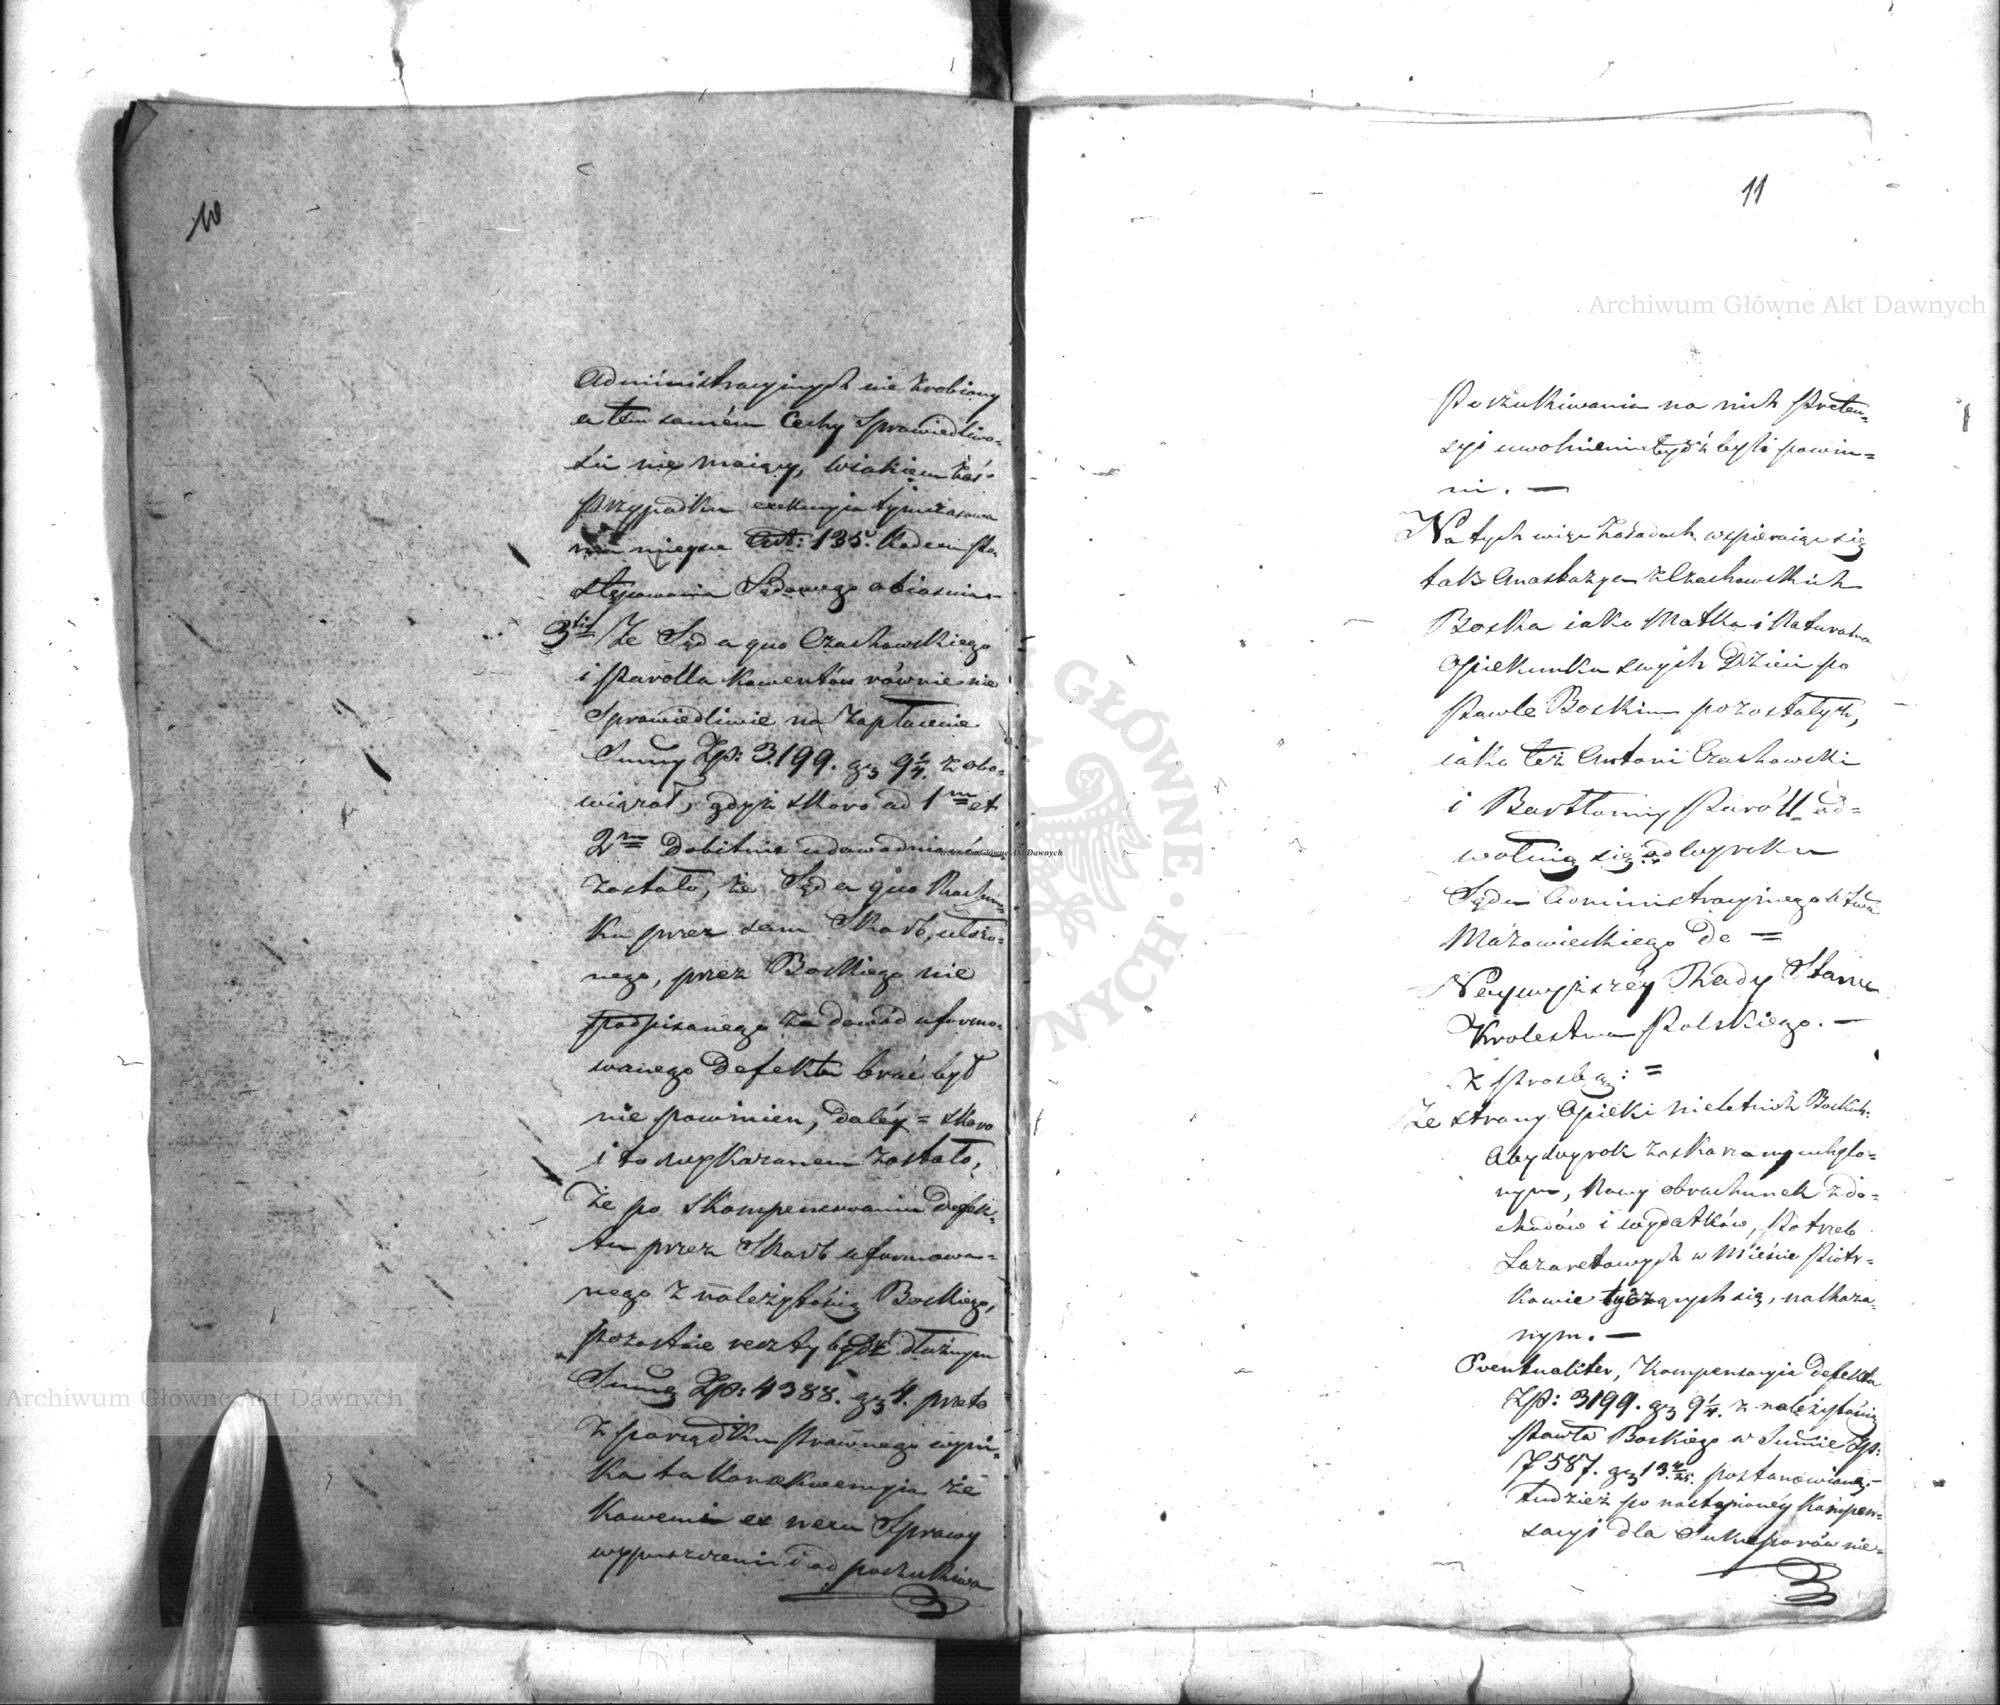 10
Administracyinych nie zrobiony
a tém samém Cechy Sprawiedliwo-
ści nie maiący, w iakiem zaś
Przypadku exekucyia tymczasowa
ma mieysce Art: 135. Kodexu Po-
stępowania Sądowego obiaśnia
3tio Że Sąd a quo Czachowskiego
i Parolla Kawentów równie nie
Sprawiedliwie na Zapłacenie
Summy Złp: 3.199. gr 9 1/4. zobo-
wiązał, gdyż skoro ad 1m et
2m Dobitnie udowodnione
zostało, że Sąd a quo Rachun-
ku przez sam Skarb, ułożo-
nego, przez Boskiego nie
podpisanego za dowód uformo-
wanego Defektu brać był
nie powinien, daléy = skoro
i to wykazanem zostało,
Że po skompensowaniu Defek-
tu przez Skarb uformowa-
nego z należytością Boskiego,
pozostaie reszty bydź dłużnym
Summę Złp: 4388. gr 4. przeto
z porządku prawnego wyni-
ka ta konsekwencyia że
Kawenci ex nexu Sprawy
wypuszczeni i od poszukiwa
11
Poszukiwania na nich Preten-
syi uwolnieni bydź byli powin-
ni. —
Na tych więc Zasadach wspieraiąc się
tak Anastazya z Czachowskich
Boska iako Matka i Naturalna
Opiekunka swych Dzieci po
Pawle Boskim pozostałych,
iako też Antoni Czachowski
i Bartłomiy Paróll od-
wołuią się od Wyroku
Sądu Administracyinego Wtwa
Mazowieckiego do =
Naywyższéy Rady Stanu
Krolestwa Polskiego. —
z Prozbą: =
Ze strony Opieki nieletnich Boskich.
Aby Wyrok zaskarzony uchylo-
nym, Nowy obrachunek z do-
chodów i wydatków, Potrzeb
Lazaretowych w Mieście Piotr-
kowie tyczących się, nakaza-
nym. —
Eventualiter, Kompensacyia Defektu
Złp: 3199. gr 9 1/4. z należytością
Pawła Boskiego w Summie Złp:
7587. gr 13 4/25. postanowioną,-
Tudzież po nastąpionéy Kompen-
sacyi dla Sukcessorów nie-
Archiwum Główne Akt Dawnych
Archiwum Główne Akt Dawnych
Archiwum Główne Akt Dawnych
GŁÓWNE